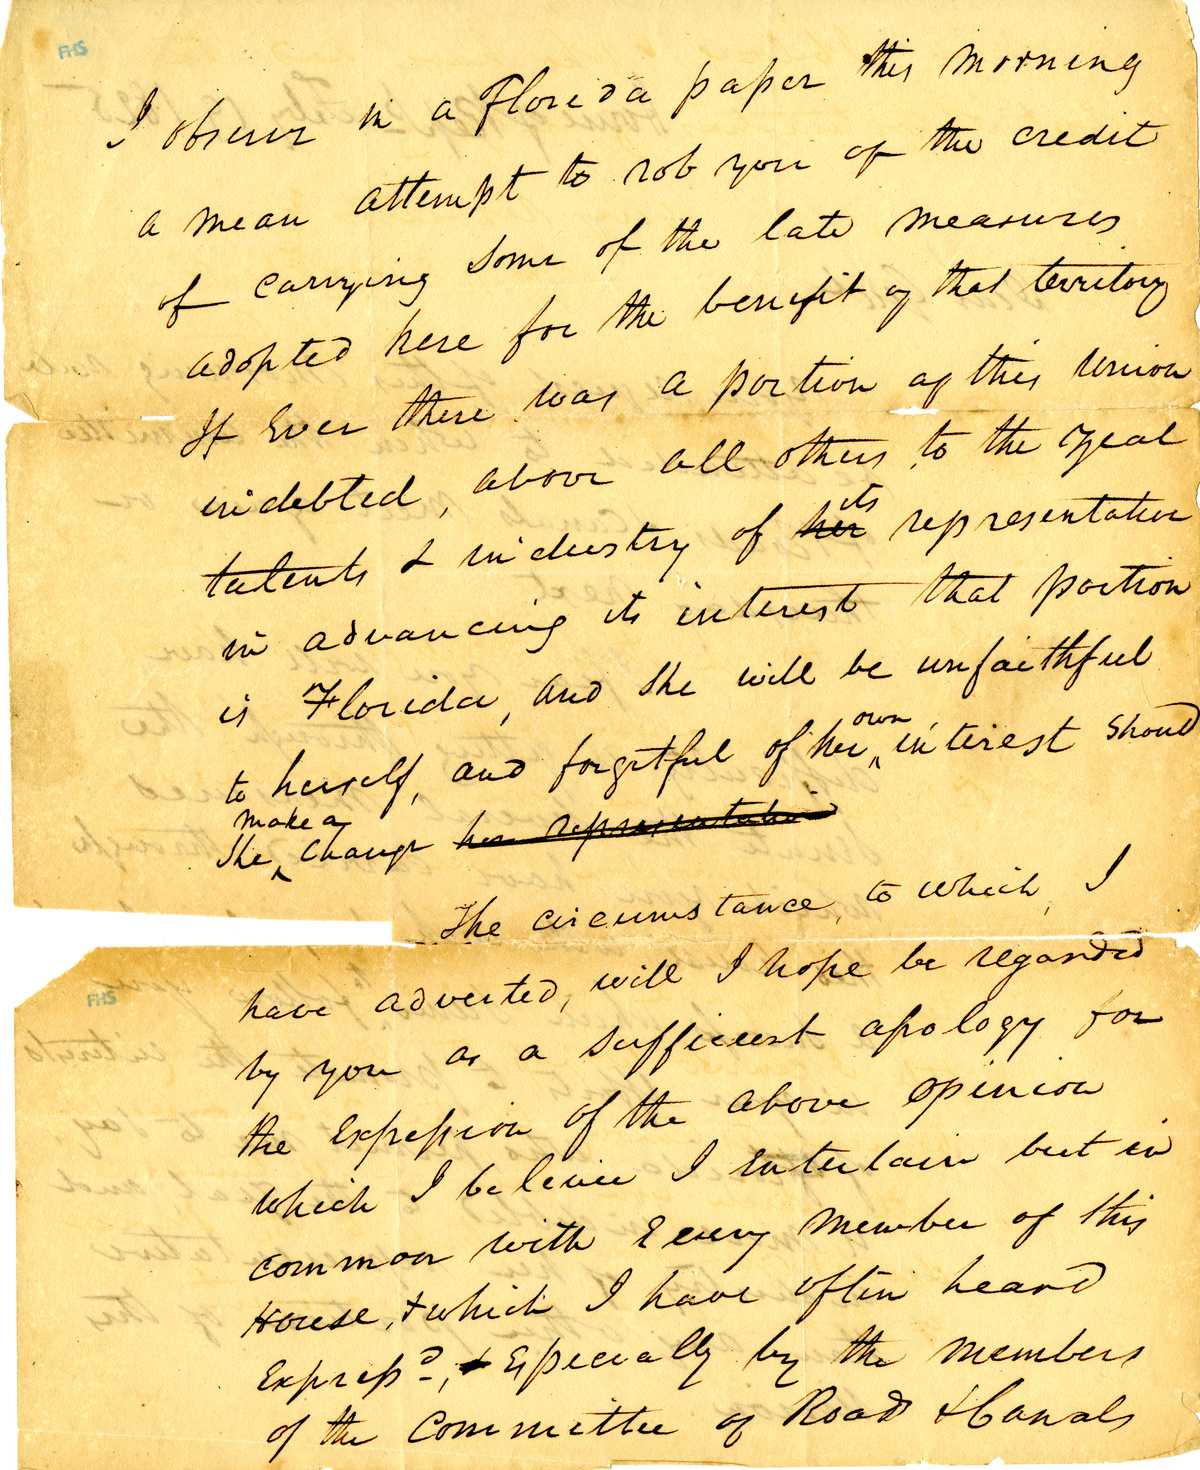 FHS
I observe in a Florida paper this morning
a mean attempt to rob you of the credit
of carrying some of the late measures
adopted here for the benefit of that territory
If Ever there was a portion of this Union
indebted, above all others, to the zeal
talents & industry of her its representative
in advancing its interest that portion
is Florida, and she will be unfaithful
to herself, and forgetful of her own interest should
she make a change her representative
The circumstance, to which, I
FHS
have adverted, will I hope be regarded
by you as a sufficient apology for
the Expression of the above opinion
which I believe I Entertain but in
common with Every member of this
House, & which I have often heard
Expressd, & Especially by the members
of the Committee of Roads & Canals